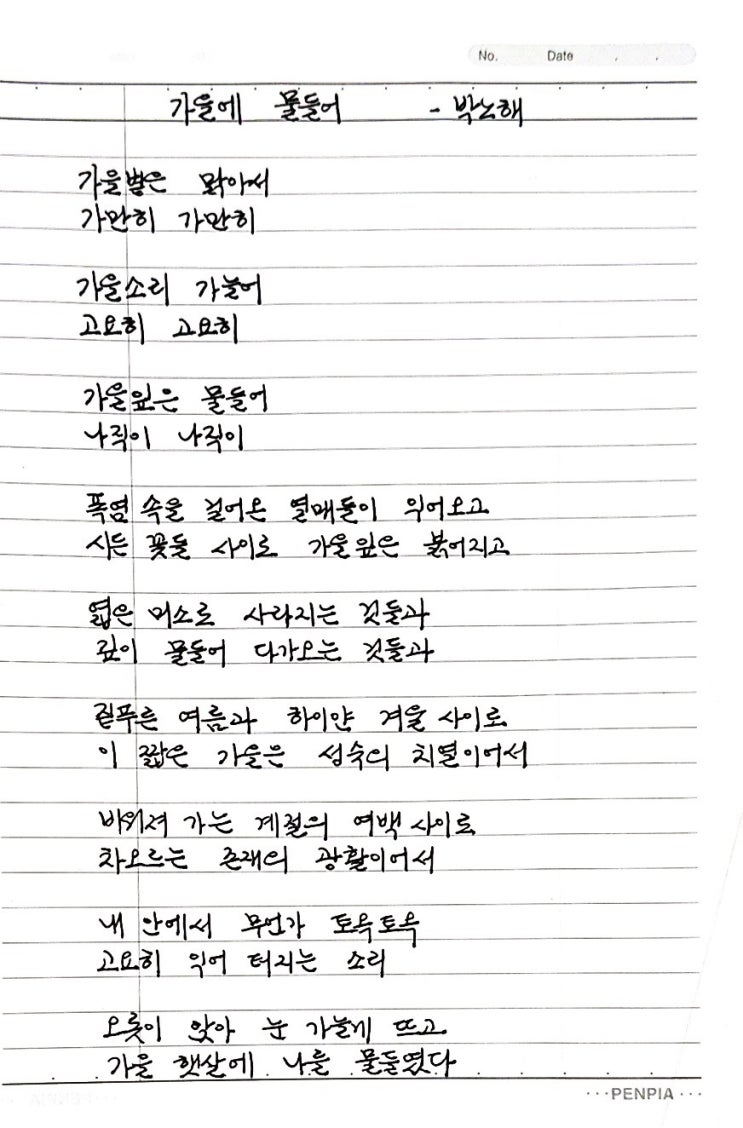 No. Date
가을에 물들어 - 박노해
가을볕은 맑아서
가만히 가만히
가을소리 가늘어
고요히 고요히
가을잎은 물들어
나직이 나직이
폭염 속을 걸어온 열매들이 익어오고
시든 꽃들 사이로 가을잎은 붉어지고
엷은 미소로 사라지는 것들과
깊이 물들어 다가오는 것들과
짙푸른 여름과 하이얀 겨울 사이로
이 짧은 가을은 성숙의 치열이어서
비워져 가는 계절의 여백 사이로
차오르는 존재의 광활이어서
내 안에서 무언가 토옥토옥
고요히 익어 터지는 소리
오롯이 앉아 눈 가늘게 뜨고
가을 햇살에 나를 물들였다
···PENPIA···